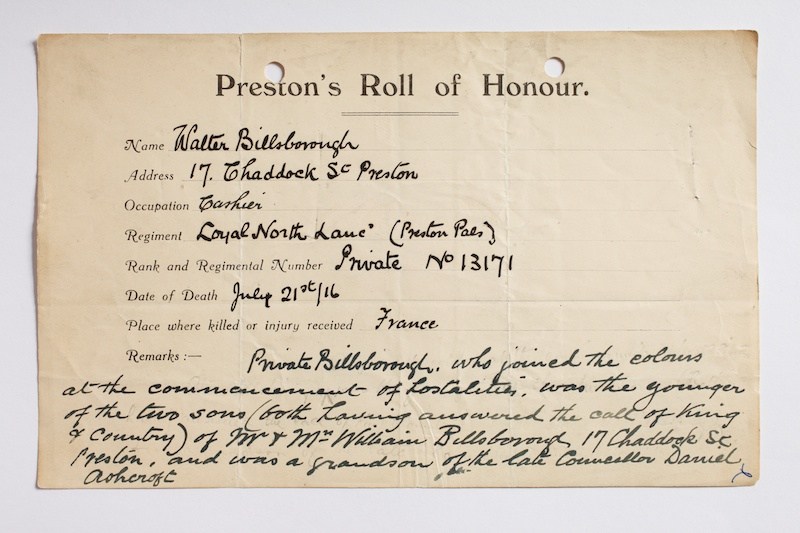 Preston's Roll of Honour.
Name Walter Billsborough
Address 17. Chaddock St Preston
Occupation Cashier
Regiment Loyal North Lanc' (Preston Pals)
Rank and Regimental Number Private No 13171
Date of Death July 21st/16
Place where killed or injury received France
Remarks :— Private Billsborough, who joined the colours
at the commencement of hostalities, was the younger
of the two sons (both having answered the call of King
& Country) of Mr & Mrs William Billsborough, 17 Chaddock St
Preston, and was a grandson of the late Councillor Daniel
Ashcroft